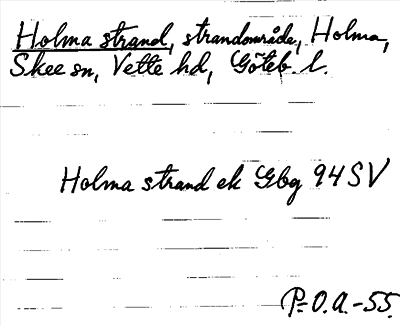 Holma strand, strandområde, Holma,
Skee sn, Vette hd, Göteb. l.
Holma strand ek Gbg 94 SV
P.-O.A.-55.